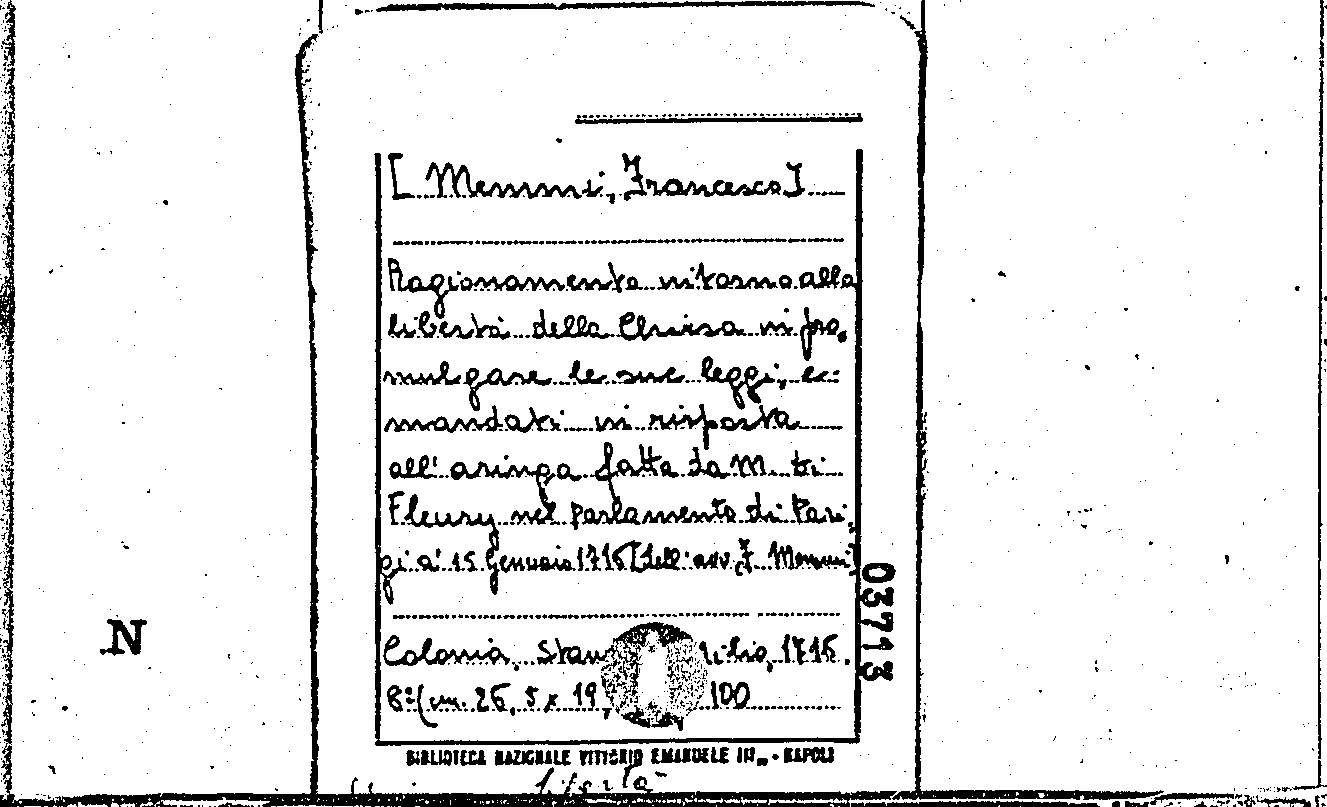 [Memmi, Francesco]
Ragionamento intorno alla
libertà della Chiesa in pro.
mulgare le sue leggi, e
mandati in risposta
all' aringa fatta da M. di
Fleury nel Parlamento di Pari.
gi a' 15 Gennaio 1716 [dell' avv. F. Memmi]
Colonia, 1716.
8° (cm. 26,5 x 19, 100
03713
N
BIBLIOTECA NAZIONALE VITTORIO EMANUELE III - NAPOLI
libertà